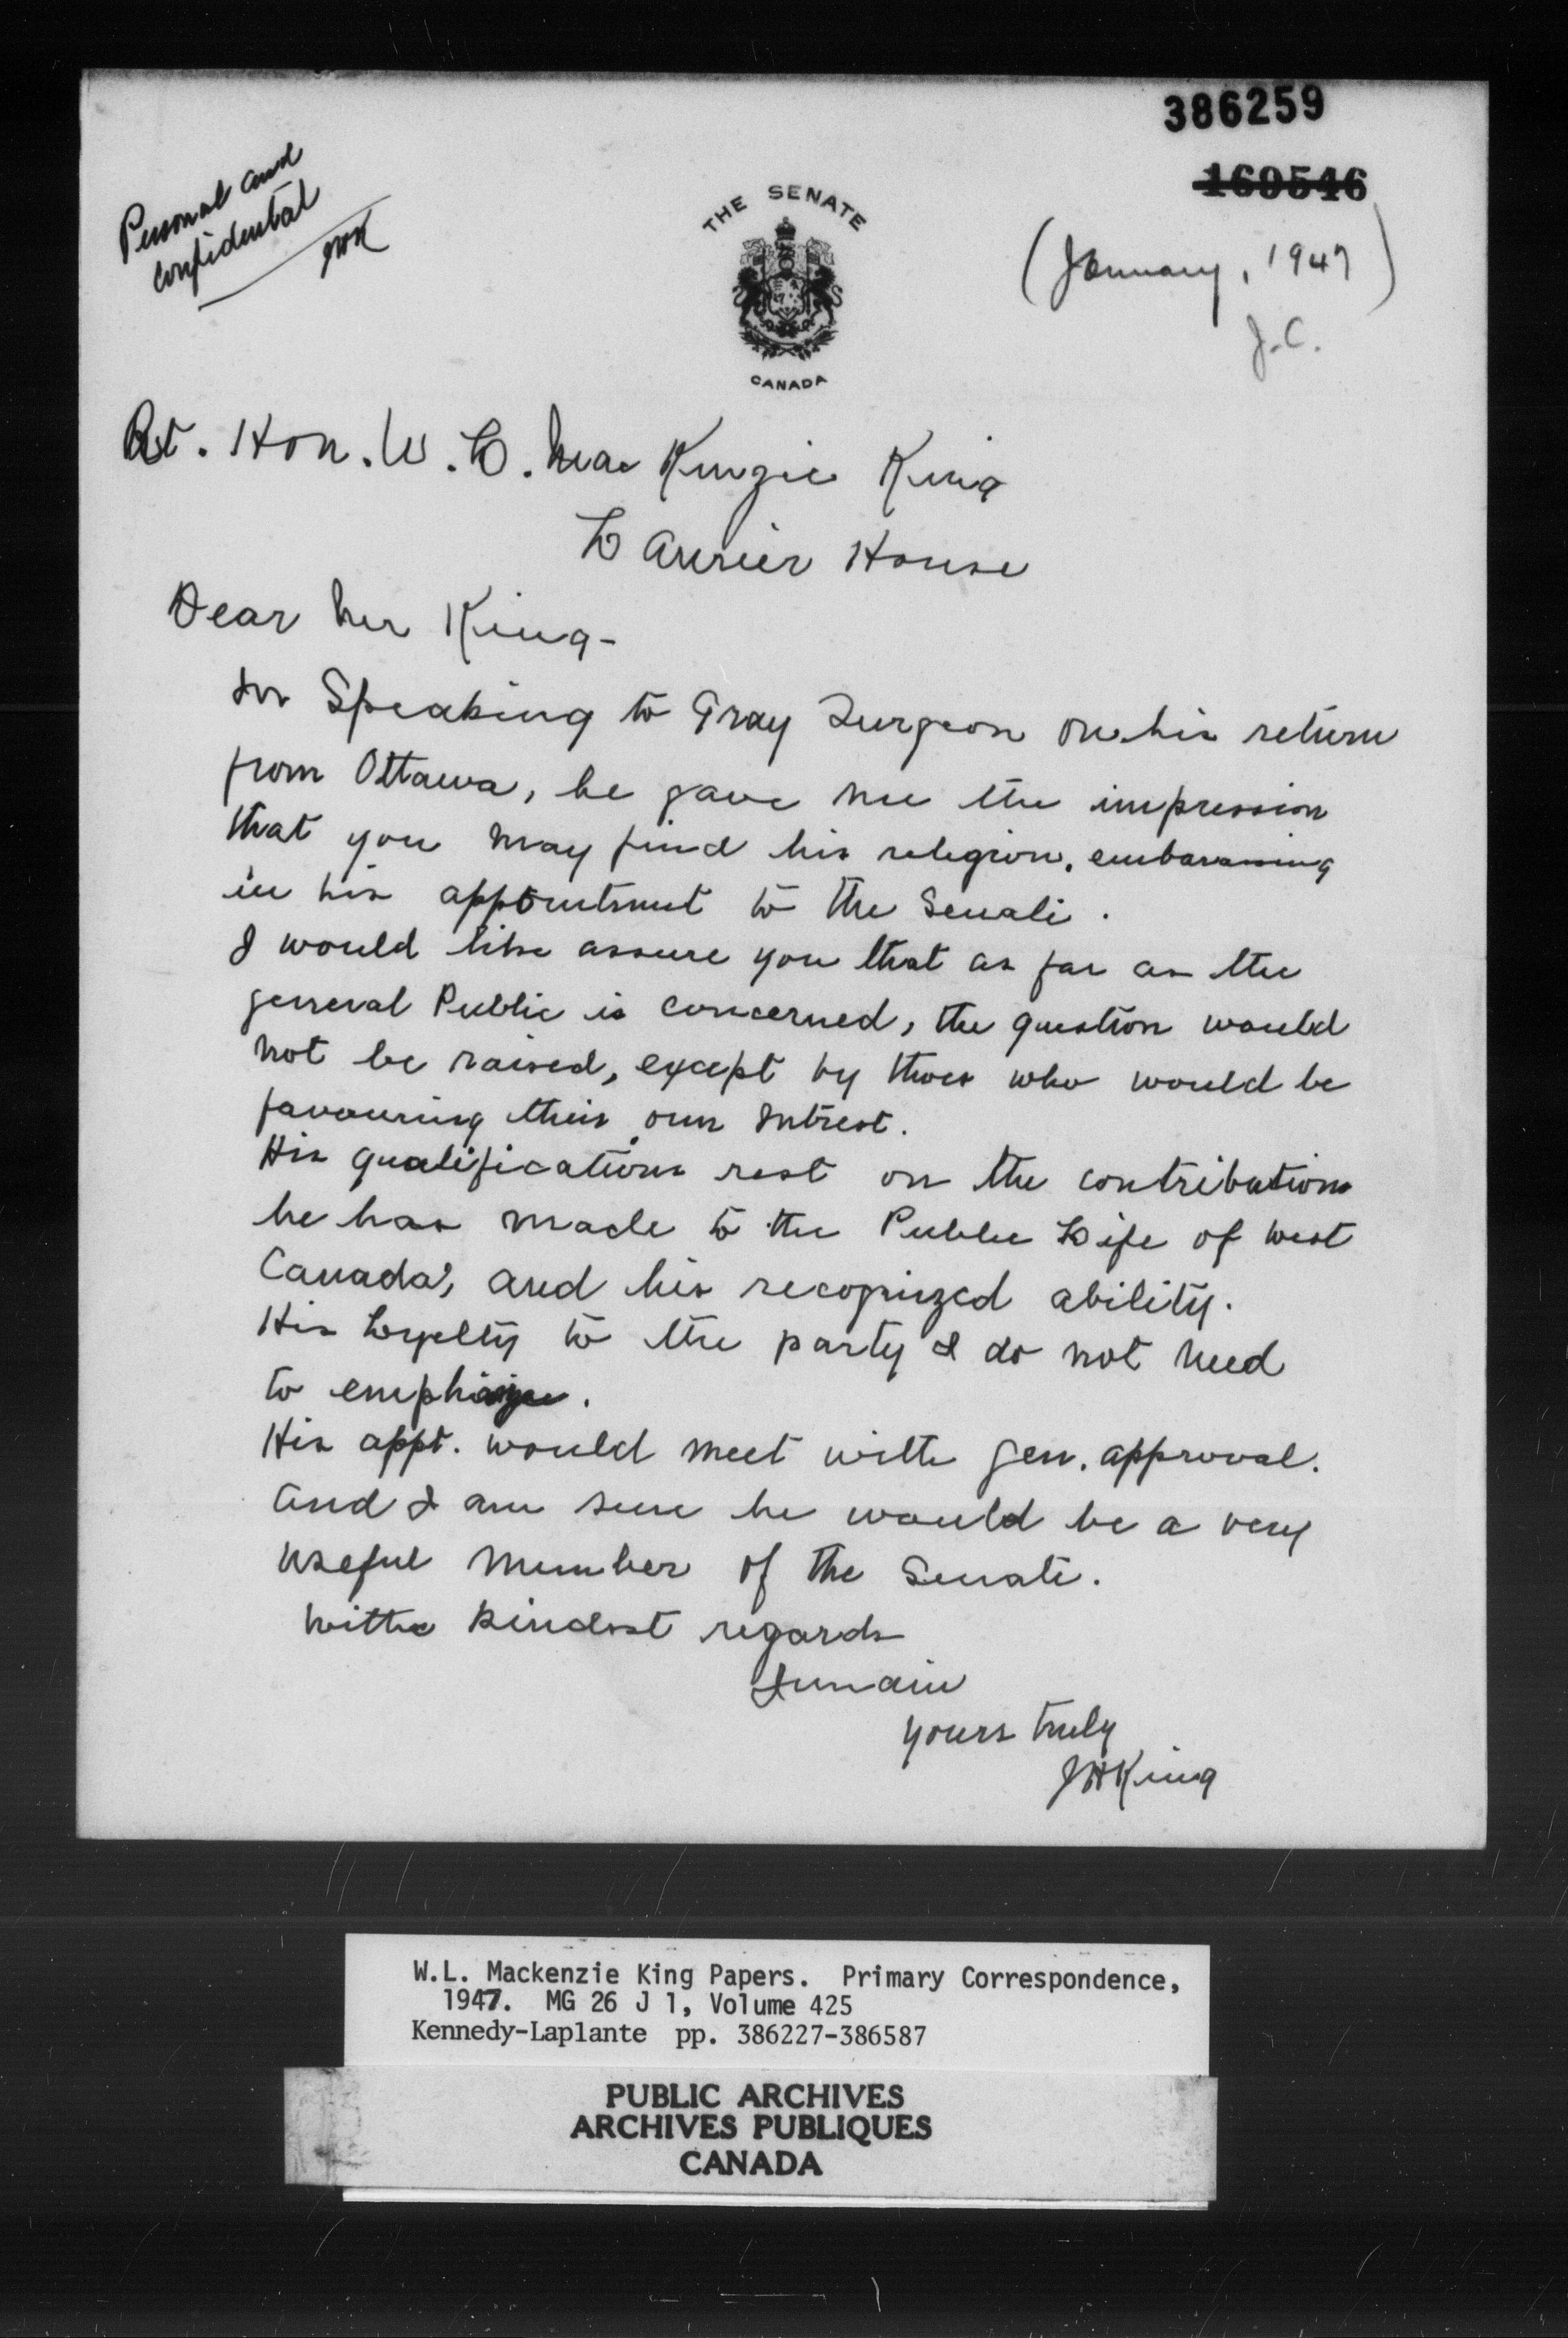 386259
169546
Personal and
confidential
JHK
THE SENATE
CANADA
(January, 1947)
J.C.
Rt. Hon. W. L. MacKenzie King
Laurier House
Dear Mr King-
In Speaking to Gray Turgeon on his return
from Ottawa, he gave me the impression
that you may find his religion, embarassing
in his appointment to the Senate.
I would like assure you that as far as the
general Public is concerned, the question would
not be raised, except by thoes who would be
favouring their own Intrest.
His qualifications rest on the contributions
he has made to the Public Life of West
Canada, and his recognized ability.
His Loyelty to the party I do not need
to emphasize.
His appt. would meet with gen. approval.
and I am sure he would be a very
useful Member of the Senate.
With kindest regards
I remain
yours truly
JHKing
W.L. Mackenzie King Papers. Primary Correspondence,
1947. MG 26 J 1, Volume 425
Kennedy-Laplante pp. 386227-386587
PUBLIC ARCHIVES
ARCHIVES PUBLIQUES
CANADA